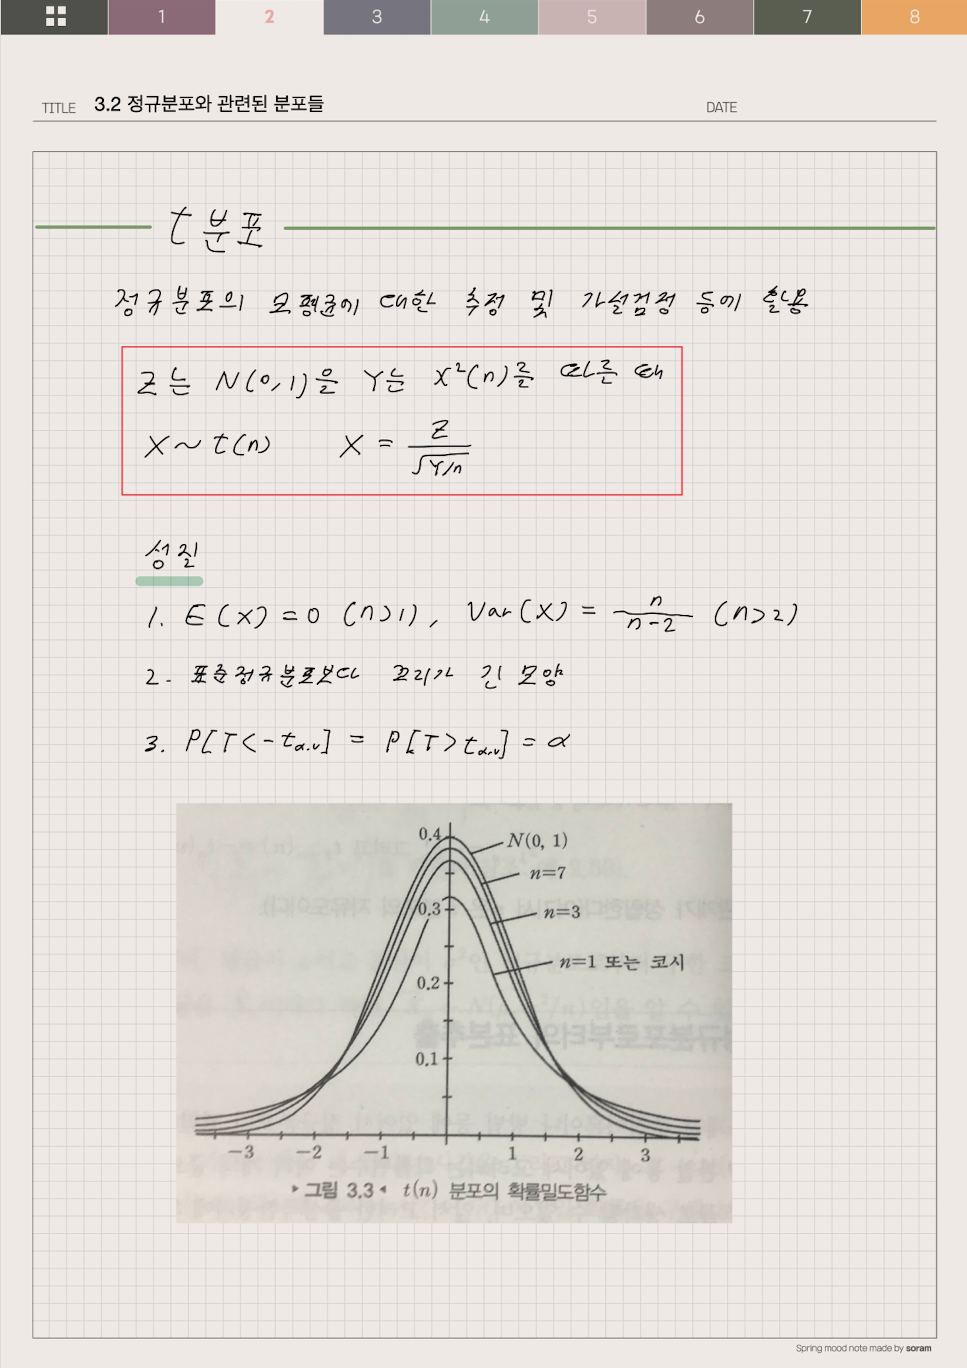 1 2 3 4 5 6 7 8
TITLE 3.2 정규분포와 관련된 분포들 DATE
t 분포
정규분포의 모평균에 대한 추정 및 가설검정 등에 활용
Z는 N(0,1)을 Y는 X²(n)를 따를 때
X ~ t(n) X = Z / √Y/n
성질
1. E(X) = 0 (n>1), Var(X) = n / n-2 (n>2)
2. 표준정규분포보다 꼬리가 긴 모양
3. P[T < -tα,ν] = P[T > tα,ν] = α
0.4
N(0, 1)
n=7
0.3
n=3
n=1 또는 코시
0.2
0.1
-3 -2 -1 1 2 3
▸ 그림 3.3 ◂ t(n) 분포의 확률밀도함수
Spring mood note made by soram